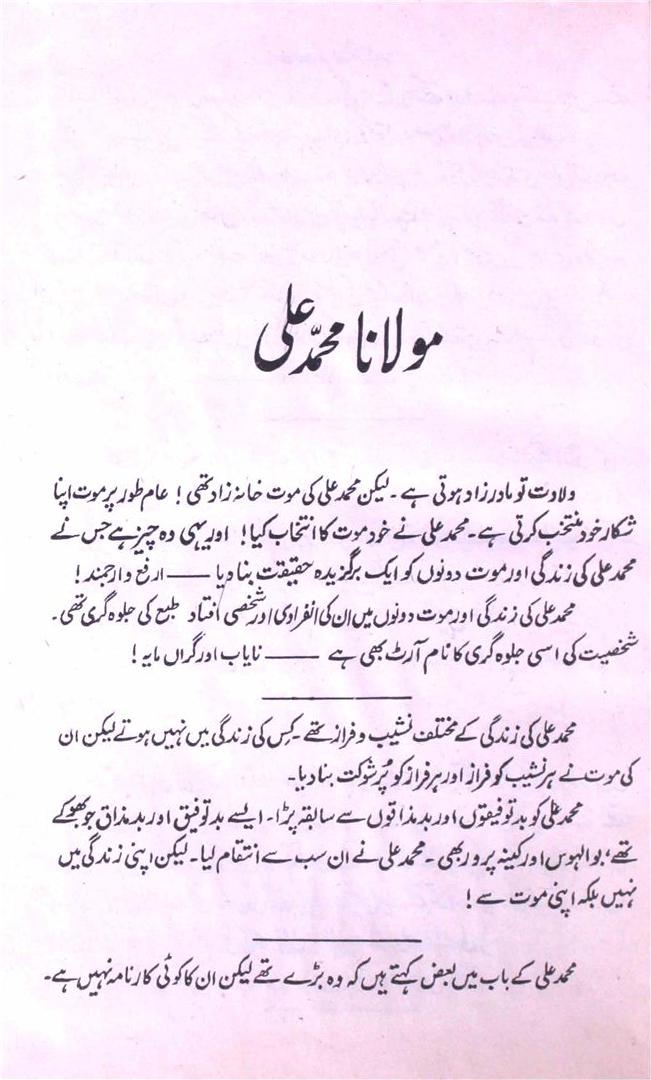 مولانا محمدؐ علی
ولادت تو مادر زاد ہوتی ہے ۔ لیکن محمد علی کی موت خانہ زاد تھی ! عام طور پر موت اپنا
شکار خود منتخب کرتی ہے ۔ محمد علی نے خود موت کا انتخاب کیا ! اور یہی وہ چیز ہے جس نے
محمد علی کی زندگی اور موت دونوں کو ایک برگزیدہ حقیقت بنا دیا —— ارفع و ارجمند !
محمد علی کی زندگی اور موت دونوں میں ان کی انفرادی اور شخصی افتاد طبع کی جلوہ گری تھی ۔
شخصیت کی اسی جلوہ گری کا نام آرٹ بھی ہے —— نایاب اور گراں مایہ !
محمد علی کی زندگی کے مختلف نشیب و فراز تھے ۔ کِس کی زندگی میں نہیں ہوتے لیکن ان
کی موت نے ہر نشیب کو فراز اور ہر فراز کو پُر شوکت بنا دیا ۔
محمد علی کو بدتوفیقوں اور بدمذاقوں سے سابقہ پڑا ۔ ایسے بدتوفیق اور بدمذاق جو بھوکے
تھے ، بوالہوس اور کینہ پرور بھی ۔ محمد علی نے ان سب سے انتقام لیا ۔ لیکن اپنی زندگی میں
نہیں بلکہ اپنی موت سے !
محمد علی کے باب میں بعض کہتے ہیں کہ وہ بڑے تھے لیکن ان کا کوئی کارنامہ نہیں ہے ۔